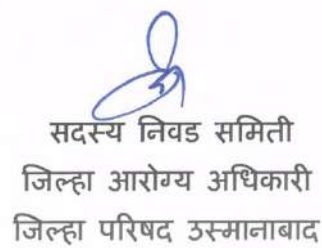 सदस्य निवड समिती
जिल्हा आरोग्य अधिकारी
जिल्हा परिषद उस्मानाबाद